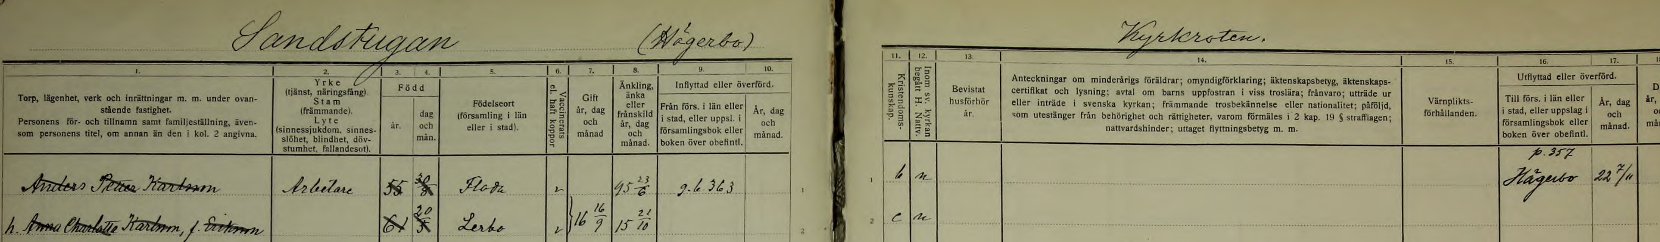 Sandstugan (Hägerbo) Kyrkroten.
1. 2. 3. 4. 5. 6. 7. 8. 9. 10. 11. 12. 13. 14. 15. 16. 17.
Torp, lägenhet, verk och inrättningar m. m. under ovanstående fastighet.
Personens för- och tillnamn samt familjeställning, även-
som personens titel, om annan än den i kol. 2 angivna.
Yrke
(tjänst, näringsfång).
Stam
(främmande).
Lyte
(sinnessjukdom, sinnes-
slöhet, blindhet, döv-
stumhet, fallandesot).
Född
år.
dag
och
mån.
Födelseort
(församling i län
eller i stad).
Vaccinerats
el. haft koppor
Gift
år, dag
och
månad
Änkling,
änka
eller
frånskild
år, dag
och
månad.
Inflyttad eller överförd.
Från förs. i län eller
i stad, eller uppsl. i
församlingsbok eller
boken över obefintl.
År, dag
och
månad.
Kristendoms-
kunskap.
Inom sv. kyrkan
begått H. Nattv.
Bevistat
husförhör
år.
Anteckningar om minderårigs föräldrar; omyndigförklaring; äktenskapsbetyg, äktenskaps-
certifikat och lysning; avtal om barns uppfostran i viss troslära; frånvaro; utträde ur
eller inträde i svenska kyrkan; främmande trosbekännelse eller nationalitet; påföljd,
som utestänger från behörighet och rättigheter, varom förmäles i 2 kap. 19 § strafflagen;
nattvardshinder; uttaget flyttningsbetyg m. m.
Värnplikts-
förhållanden.
Utflyttad eller överförd.
Till förs. i län eller
i stad, eller uppslag i
församlingsbok eller
boken över obefintl.
År, dag
och
månad.
p. 357
Anders Petter Karlsson Arbetare 55 30/8 Floda v 95 23/6 g. b. 363 1 1 b n Hägerbo 22 7/11
h. Anna Charlotta Karlsson, f. Eriksson 61 20/5 Lerbo v 16 16/9 15 21/10 2 2 c n